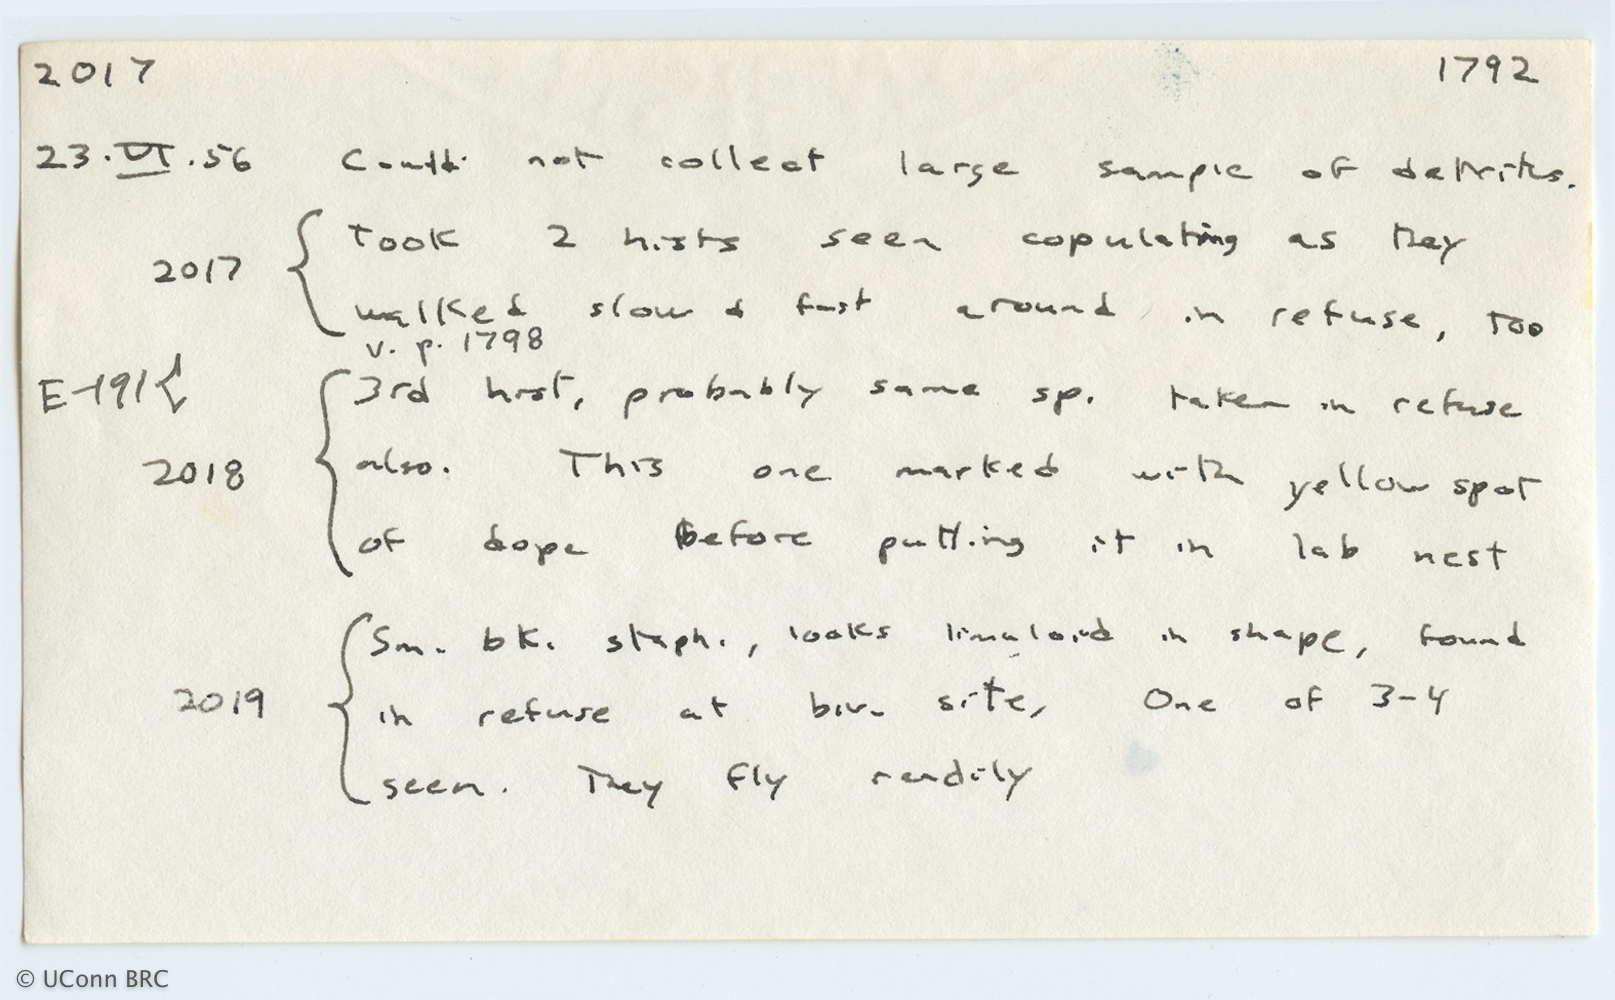 2017 1792
23.VI.56 Could not collect large sample of detritus.
2017 { Took 2 hists seen copulating as they
walked slow & fast around in refuse, too
v. p. 1798
E-191 { 3rd hist, probably same sp. taken in refuse
2018 also. This one marked with yellow spot
of dope before putting it in lab nest
Sm. bk. staph., looks limuloid in shape, found
2019 { in refuse at biv. site, One of 3-4
seen. They fly readily
© UConn BRC